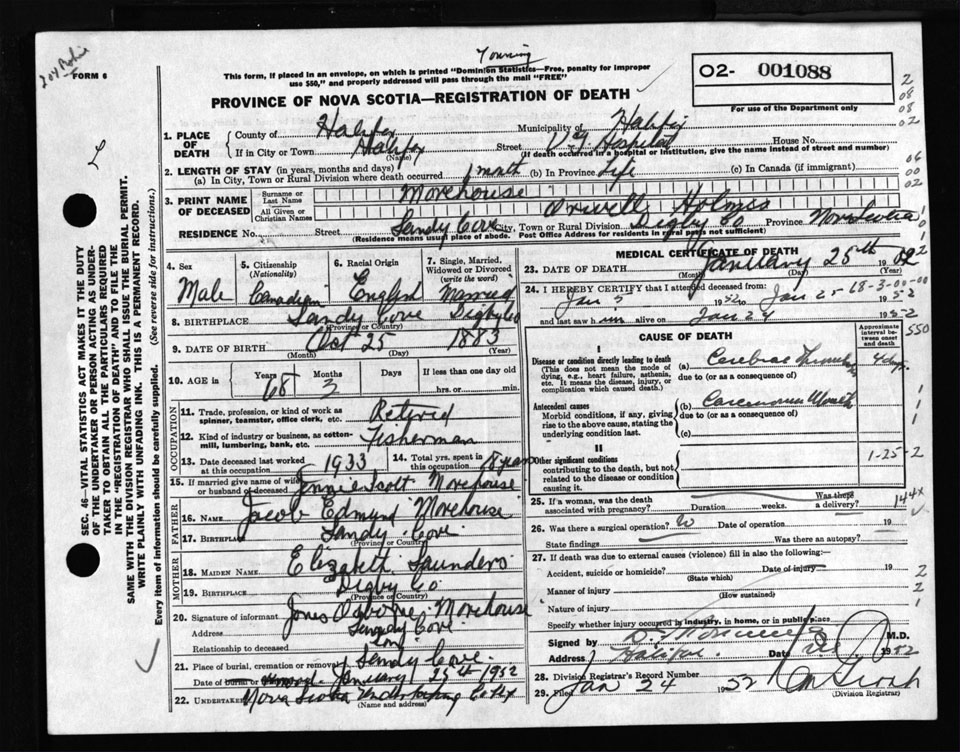 FORM 6
This form, if placed in an envelope, on which is printed "Dominion Statistics—Free, penalty for improper
use $50," and properly addressed will pass through the mail "FREE"
02- 001088
For use of the Department only
PROVINCE OF NOVA SCOTIA—REGISTRATION OF DEATH
1. PLACE OF DEATH
County of Halifax Municipality of Halifax
If in City or Town Halifax Street V.G. Hospital House No.
(Name) (If death occurred in a hospital or institution, give the name instead of street and number)
2. LENGTH OF STAY (in years, months and days)
(a) In City, Town or Rural Division where death occurred 1 month (b) In Province Life (c) In Canada (if immigrant)
3. PRINT NAME OF DECEASED
Surname or Last Name Morehouse
All Given or Christian Names Orwell Holmes
RESIDENCE No. Street Sandy Cove City, Town or Rural Division Digby Co Province Nova Scotia
(Residence means usual place of abode. Post Office Address for residents in rural parts not sufficient)
4. Sex
Male
5. Citizenship (Nationality)
Canadian
6. Racial Origin
English
7. Single, Married, Widowed or Divorced (write the word)
Married
8. BIRTHPLACE Sandy Cove Digby Co
(Province or Country)
9. DATE OF BIRTH Oct 25 1883
(Month) (Day) (Year)
10. AGE in Years Months Days If less than one day old
68 3 hrs. or min.
OCCUPATION
11. Trade, profession, or kind of work as
spinner, teamster, office clerk, etc. Retired
12. Kind of industry or business, as cotton-
mill, lumbering, bank, etc. Fisherman
13. Date deceased last worked
at this occupation 1933
14. Total yrs. spent in
this occupation years
15. If married give name of wife
or husband of deceased Annie Scott Morehouse
FATHER
16. NAME Jacob Edmund Morehouse
17. BIRTHPLACE Sandy Cove
(Province or Country)
MOTHER
18. MAIDEN NAME Elizabeth Saunders
19. BIRTHPLACE Digby Co
(Province or Country)
20. Signature of informant Morehouse
Address Sandy Cove
Relationship to deceased Son
21. Place of burial, cremation or removal Sandy Cove
Date of burial or removal January 25th 1952
22. UNDERTAKER Nova Scotia Undertaking Co Hfx
(Name and address)
MEDICAL CERTIFICATE OF DEATH
23. DATE OF DEATH January 25th 19
(Month) (Day) (Year)
24. I HEREBY CERTIFY that I attended deceased from:
Jan 3 1952 to Jan 25 1952
68-3-00-00
and last saw him alive on Jan 24 1952
CAUSE OF DEATH
Approximate interval between onset and death
550
I
Disease or condition directly leading to death
(This does not mean the mode of
dying, e.g., heart failure, asthenia,
etc. It means the disease, injury, or
complication which caused death.)
(a) Cerebral 4 days
due to (or as a consequence of)
Antecedent causes
Morbid conditions, if any, giving
rise to the above cause, stating the
underlying condition last.
(b) Carcinoma Mouth
due to (or as a consequence of)
(c)
II
Other significant conditions
contributing to the death, but not
related to the disease or condition
causing it.
1-25-2
25. If a woman, was the death
associated with pregnancy? Duration weeks. Was there a delivery?
144x
26. Was there a surgical operation? No Date of operation 19
State findings Was there an autopsy?
27. If death was due to external causes (violence) fill in also the following:—
Accident, suicide or homicide? Date of injury 19
(State which)
Manner of injury
(How sustained)
Nature of injury
Specify whether injury occurred in industry, in home, or in public place
Signed by M.D.
Address Halifax Date 1952
28. Division Registrar's Record Number
29. Filed Jan 24 1952
(Division Registrar)
SEC. 46—VITAL STATISTICS ACT MAKES IT THE DUTY
OF THE UNDERTAKER OR PERSON ACTING AS UNDER-
TAKER TO OBTAIN ALL THE PARTICULARS REQUIRED
IN THE "REGISTRATION OF DEATH" AND TO FILE THE
SAME WITH THE DIVISION REGISTRAR WHO SHALL ISSUE THE BURIAL PERMIT.
WRITE PLAINLY WITH UNFADING INK. THIS IS A PERMANENT RECORD.
Every item of information should be carefully supplied. (See reverse side for instructions.)